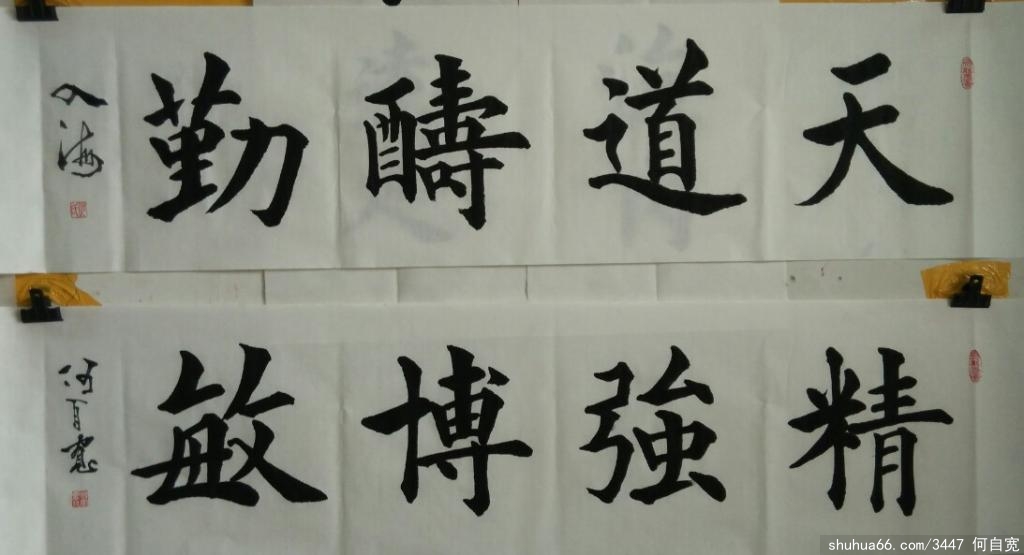 天道醻勤
精強博敏
何自寬
shuhua66.com/3447 何自宽